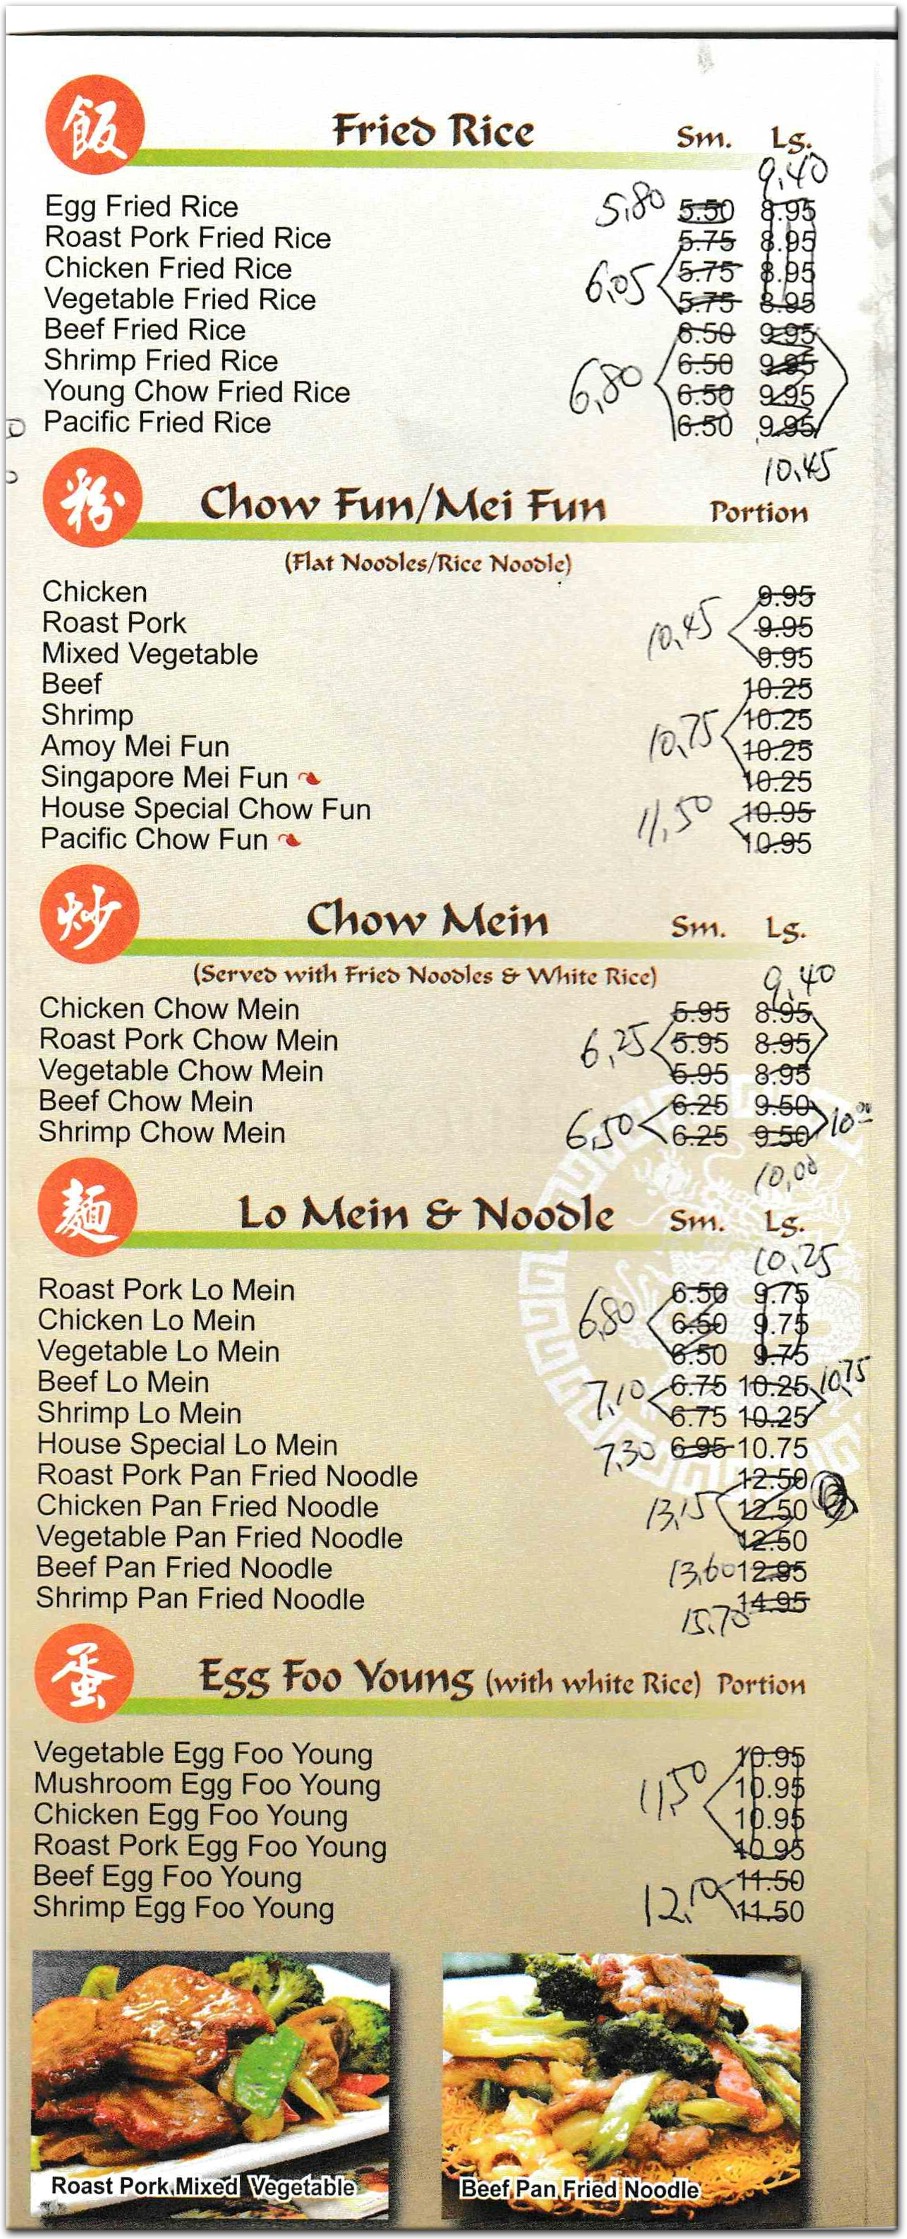 飯 Fried Rice Sm. Lg.
9.40
Egg Fried Rice 5.80 5.50 8.95
Roast Pork Fried Rice 5.75 8.95
Chicken Fried Rice 6.05 5.75 8.95
Vegetable Fried Rice 5.75 8.95
Beef Fried Rice 6.50 9.95
Shrimp Fried Rice 6.80 6.50 9.95
Young Chow Fried Rice 6.50 9.95
Pacific Fried Rice 6.50 9.95
10.45
粉 Chow Fun/Mei Fun Portion
(Flat Noodles/Rice Noodle)
Chicken 9.95
Roast Pork 10.45 9.95
Mixed Vegetable 9.95
Beef 10.25
Shrimp 10.75 10.25
Amoy Mei Fun 10.25
Singapore Mei Fun 10.25
House Special Chow Fun 11.50 10.95
Pacific Chow Fun 10.95
炒 Chow Mein Sm. Lg.
(Served with Fried Noodles & White Rice) 9.40
Chicken Chow Mein 5.95 8.95
Roast Pork Chow Mein 6.25 5.95 8.95
Vegetable Chow Mein 5.95 8.95
Beef Chow Mein 6.25 9.50 10.00
Shrimp Chow Mein 6.50 6.25 9.50
10.00
麵 Lo Mein & Noodle Sm. Lg.
10.25
Roast Pork Lo Mein 6.50 9.75
Chicken Lo Mein 6.80 6.50 9.75
Vegetable Lo Mein 6.50 9.75
Beef Lo Mein 7.10 6.75 10.25 10.75
Shrimp Lo Mein 6.75 10.25
House Special Lo Mein 7.30 6.95 10.75
Roast Pork Pan Fried Noodle 12.50
Chicken Pan Fried Noodle 13.15 12.50
Vegetable Pan Fried Noodle 12.50
Beef Pan Fried Noodle 13.60 12.95
Shrimp Pan Fried Noodle 15.70 14.95
蛋 Egg Foo Young (with white Rice) Portion
Vegetable Egg Foo Young 10.95
Mushroom Egg Foo Young 11.50 10.95
Chicken Egg Foo Young 10.95
Roast Pork Egg Foo Young 10.95
Beef Egg Foo Young 11.50
Shrimp Egg Foo Young 12.10 11.50
Roast Pork Mixed Vegetable
Beef Pan Fried Noodle